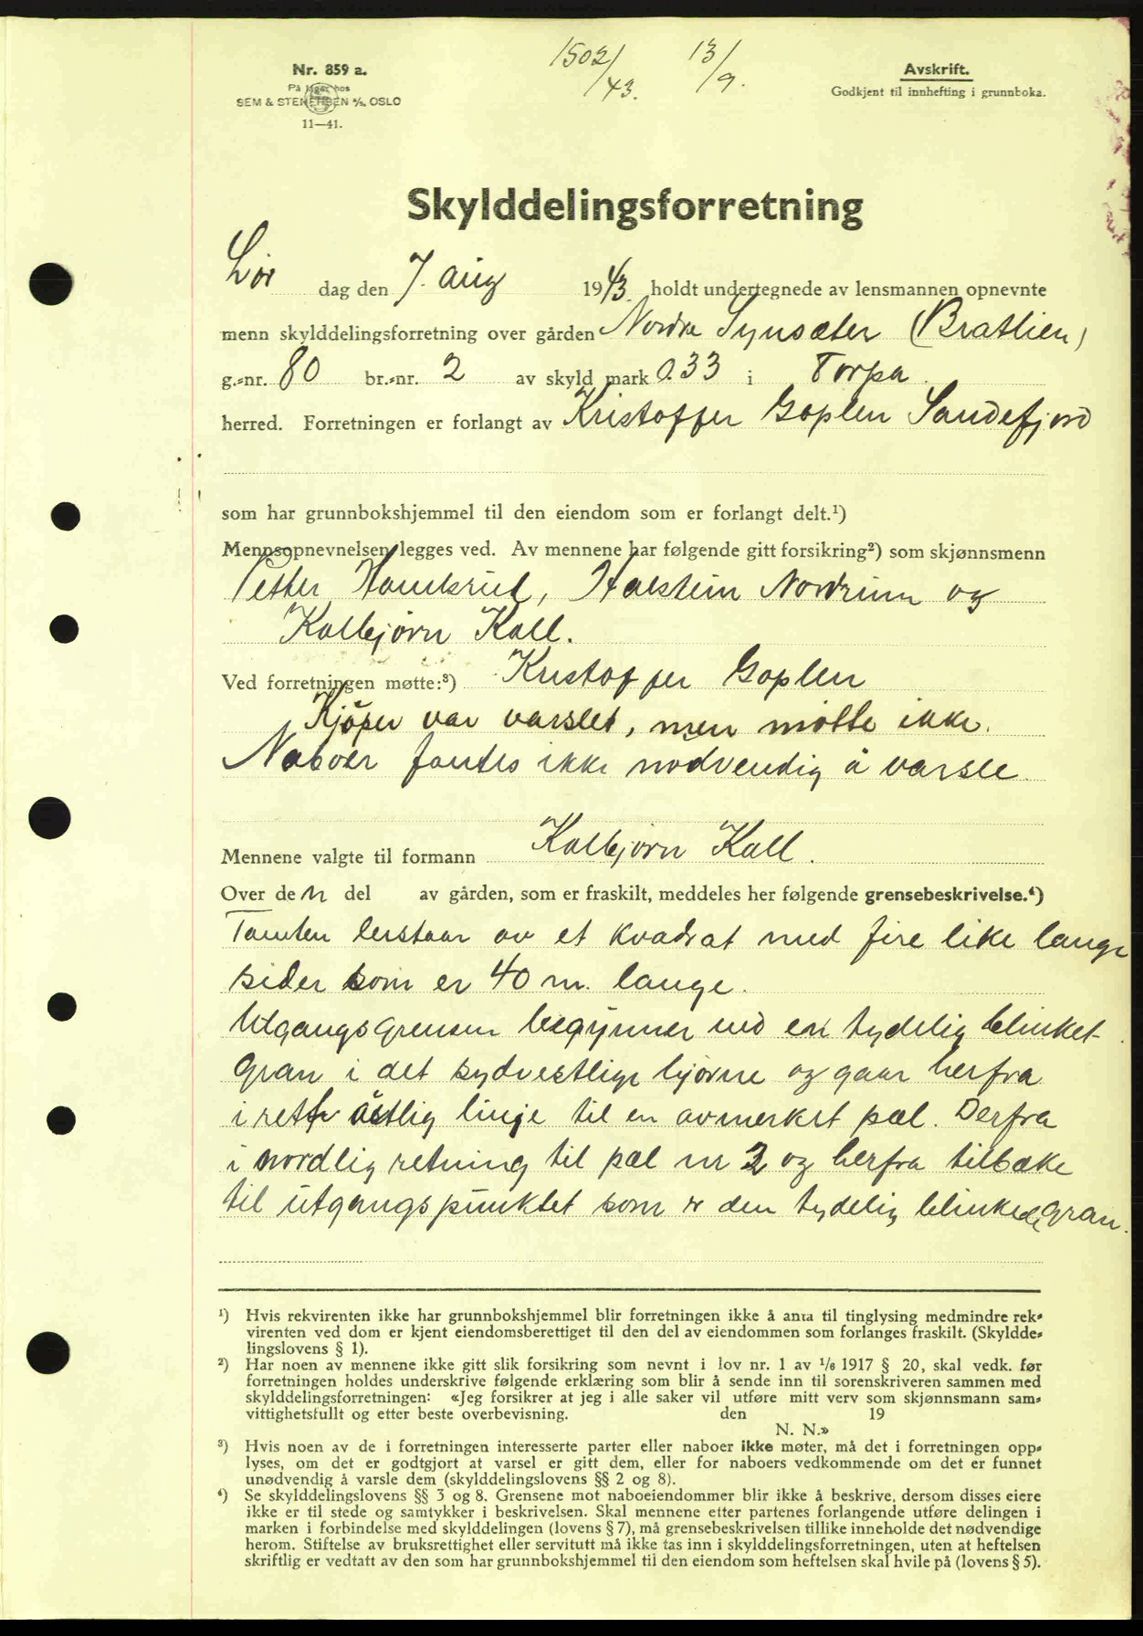 1502/43. 13/9.
Nr. 859 a.
På lager hos
SEM & STENERSEN A/S, OSLO
11—41.
Avskrift.
Godkjent til innhefting i grunnboka.
Skylddelingsforretning
Lør dag den 7. aug 1943. holdt undertegnede av lensmannen opnevnte
menn skylddelingsforretning over gården Nordre Synsæter (Bratlien)
g.-nr. 80 br.-nr. 2 av skyld mark 0.33 i Torpa
herred. Forretningen er forlangt av Kristoffer Goplen Sandefjord
som har grunnbokshjemmel til den eiendom som er forlangt delt.¹)
Mennsopnevnelsen legges ved. Av mennene har følgende gitt forsikring²) som skjønnsmenn
Petter Haukrud, Halstein Nordrum og
Kolbjørn Kall.
Ved forretningen møtte:³) Kristoffer Goplen
Kjöper var varslet, men møtte ikke.
Naboer fantes ikke nødvendig å varsle.
Mennene valgte til formann Kolbjørn Kall.
Over den del av gården, som er fraskilt, meddeles her følgende grensebeskrivelse.⁴)
Tomten berstaar av et kvadrat med fire like lange
sider som er 40 m. lange.
Utgangsgrensen begynner ved en tydelig blinket
gran i det sydvestlige hjørne og gaar herfra
i rett östlig linje til en avmerket pæl. Derfra
i nordlig retning til pæl nr 2 og herfra tilbake
til utgangspunktet som er den tydelig blinkede gran.
¹) Hvis rekvirenten ikke har grunnbokshjemmel blir forretningen ikke å anta til tinglysing medmindre rek-
virenten ved dom er kjent eiendomsberettiget til den del av eiendommen som forlanges fraskilt. (Skyldde-
lingslovens § 1).
²) Har noen av mennene ikke gitt slik forsikring som nevnt i lov nr. 1 av ¹/₆ 1917 § 20, skal vedk. før
forretningen holdes underskrive følgende erklæring som blir å sende inn til sorenskriveren sammen med
skylddelingsforretningen: «Jeg forsikrer at jeg i alle saker vil utføre mitt verv som skjønnsmann sam-
vittighetsfullt og etter beste overbevisning. den 19
N. N.»
³) Hvis noen av de i forretningen interesserte parter eller naboer ikke møter, må det i forretningen opp-
lyses, om det er godtgjort at varsel er gitt dem, eller for naboers vedkommende om det er funnet
unødvendig å varsle dem (skylddelingslovens §§ 2 og 8).
⁴) Se skylddelingslovens §§ 3 og 8. Grensene mot naboeiendommer blir ikke å beskrive, dersom disses eiere
ikke er til stede og samtykker i beskrivelsen. Skal mennene etter partenes forlangende utføre delingen i
marken i forbindelse med skylddelingen (lovens § 7), må grensebeskrivelsen tillike inneholde det nødvendige
herom. Stiftelse av bruksrettighet eller servitutt må ikke tas inn i skylddelingsforretningen, uten at heftelsen
skriftlig er vedtatt av den som har grunnbokshjemmel til den eiendom som heftelsen skal hvile på (lovens § 5).